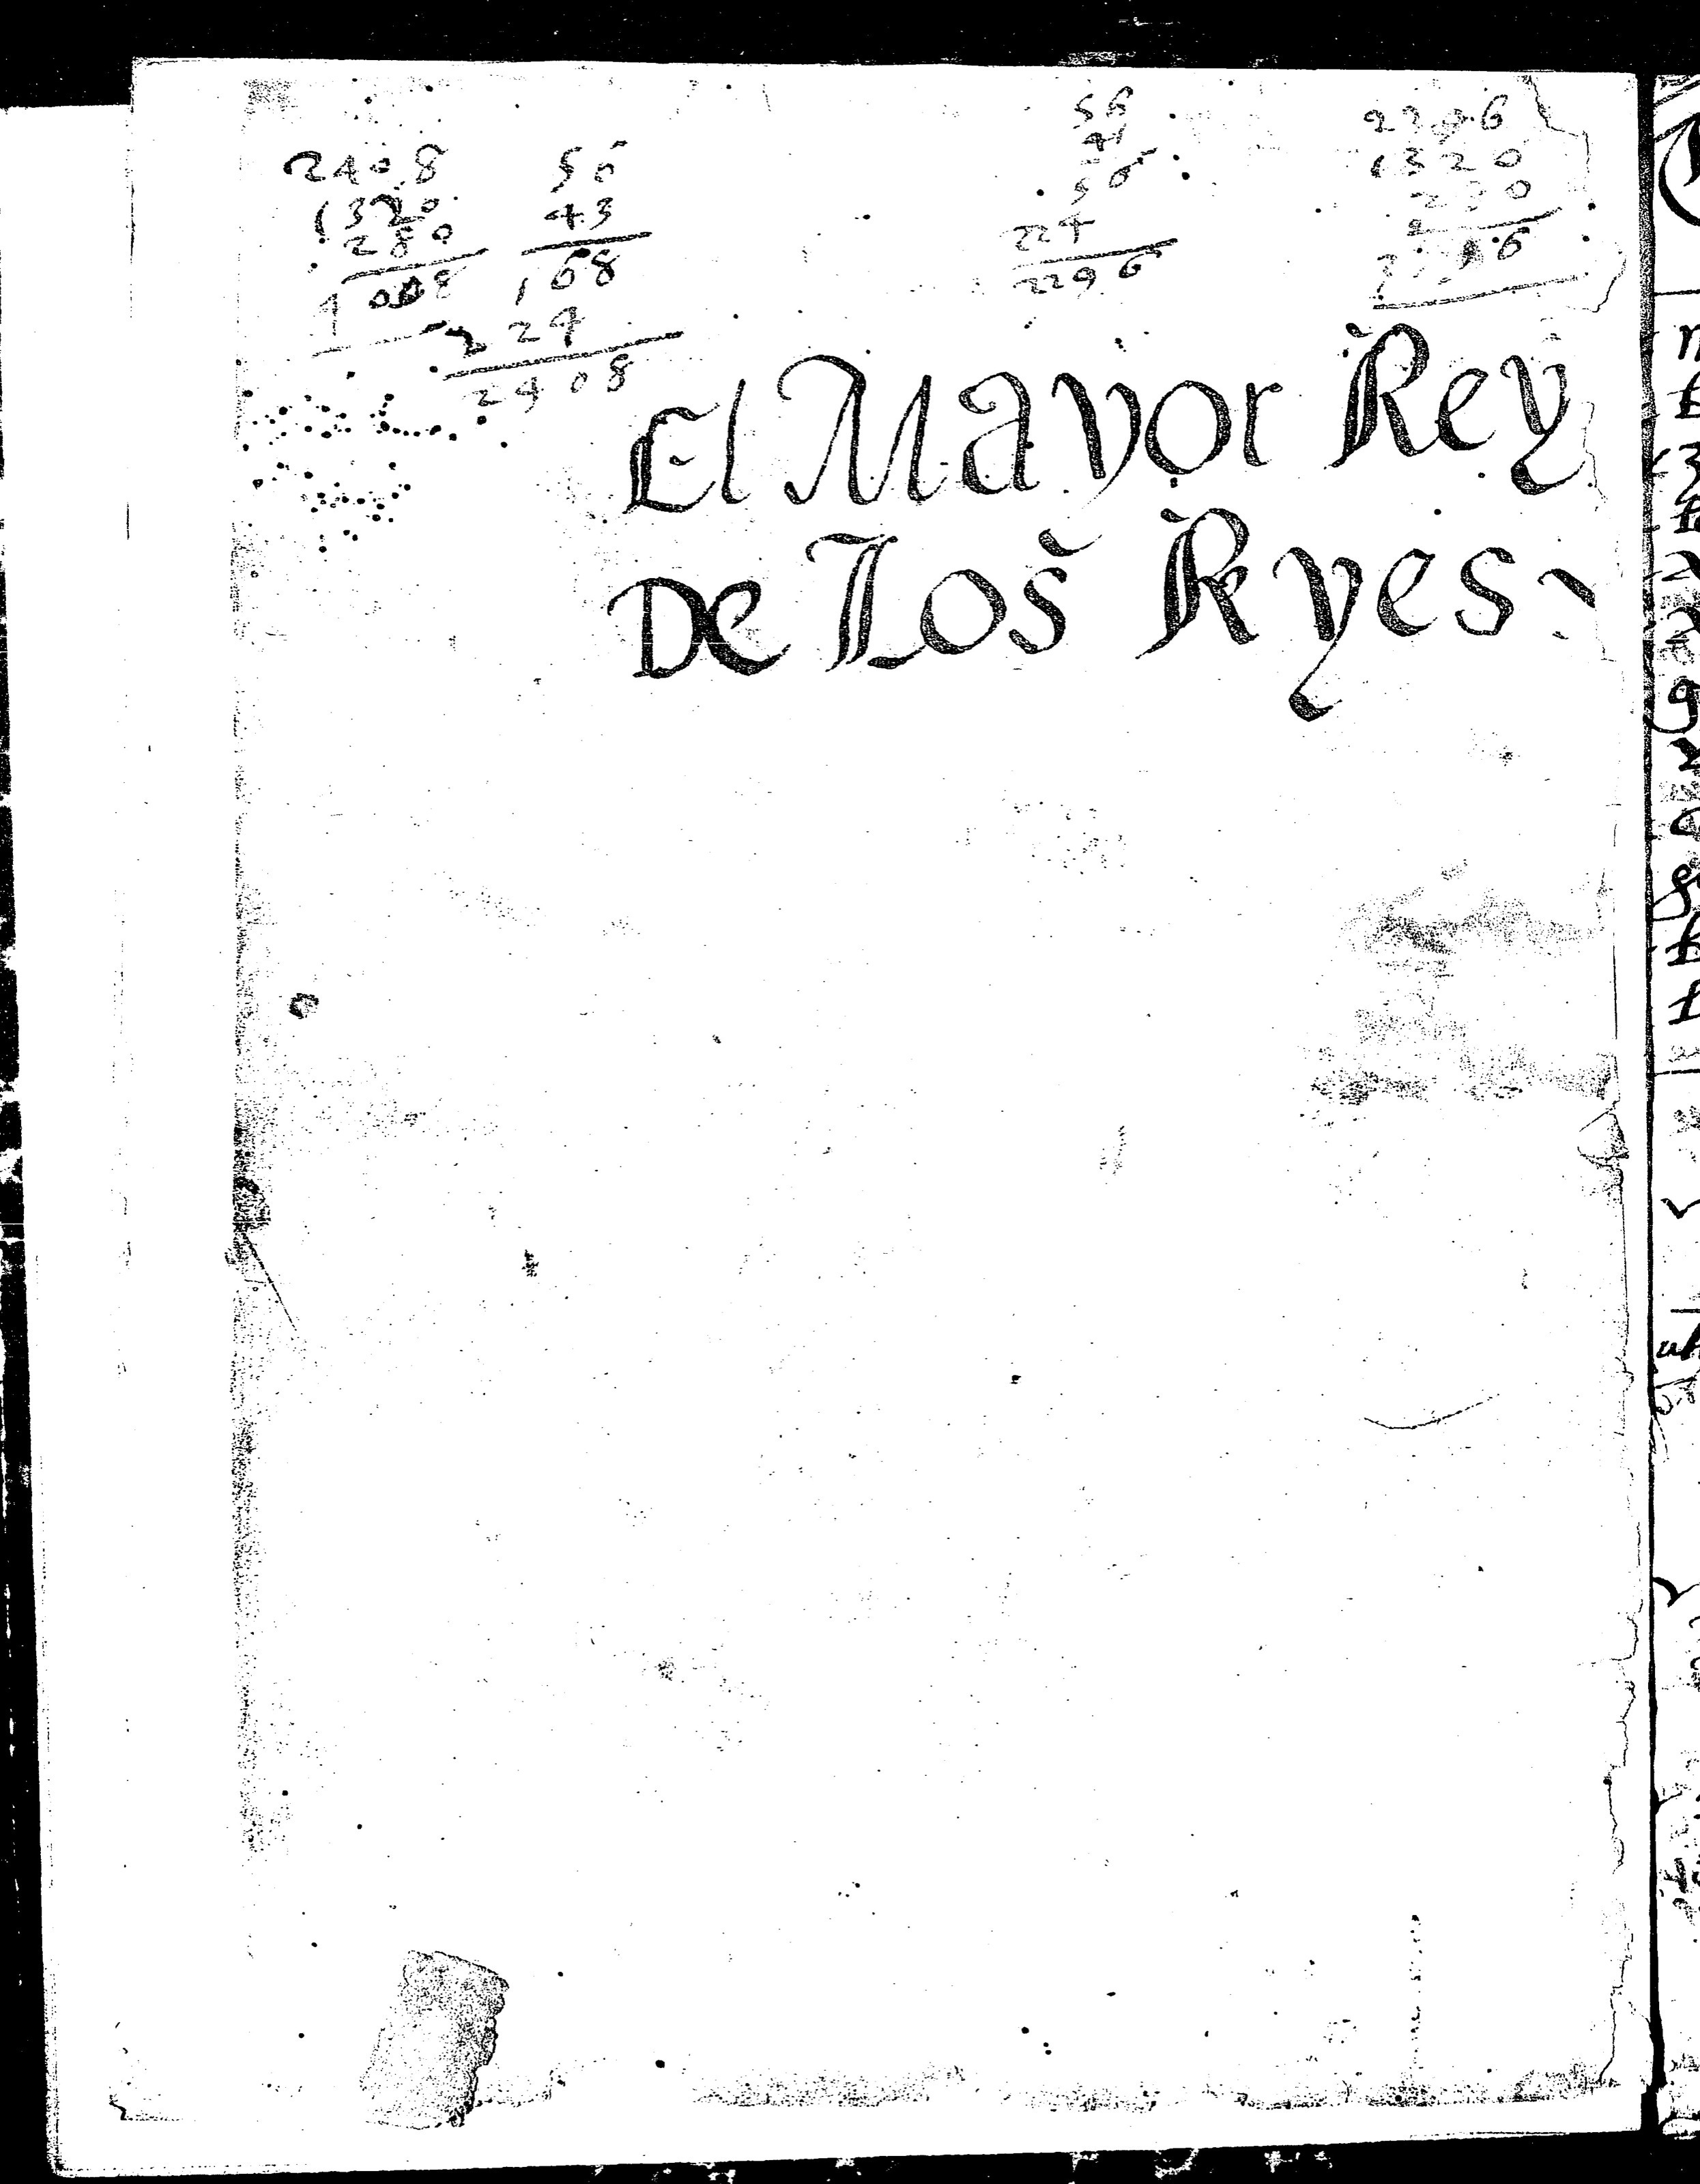 2408
1320
280
4008
56
43
168
224
2408
56
41
56
224
2296
1320
El Mayor Rey
De Los Reyes